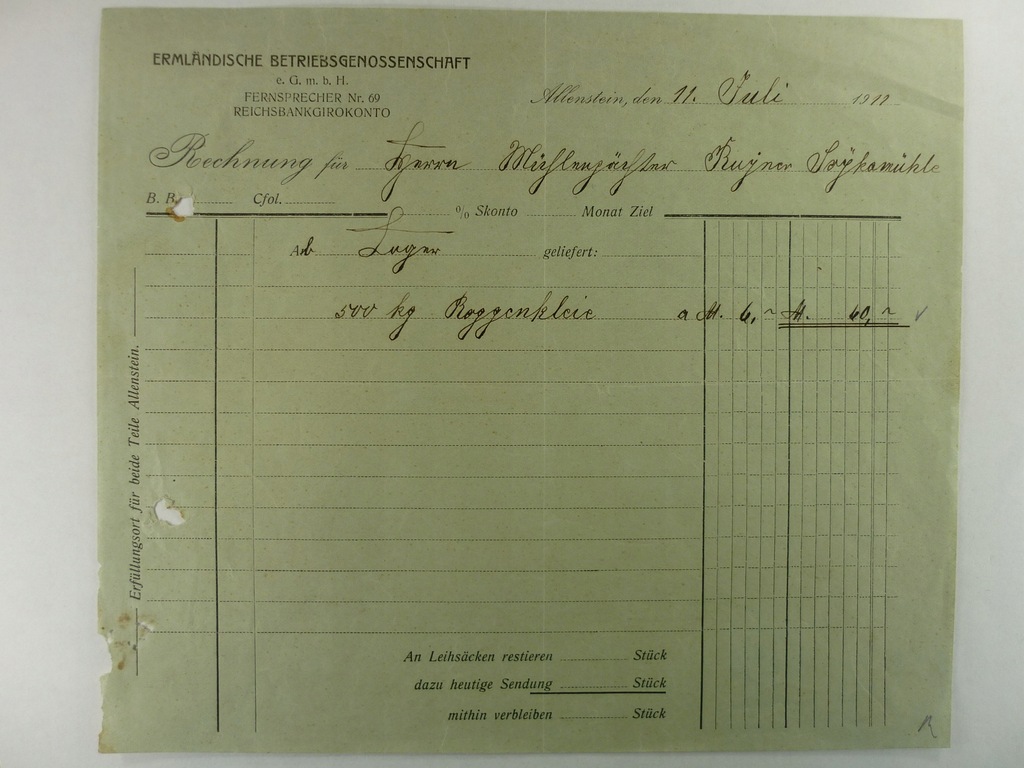 ERMLÄNDISCHE BETRIEBSGENOSSENSCHAFT
e. G. m. b. H.
FERNSPRECHER Nr. 69
REICHSBANKGIROKONTO
Allenstein, den 11. Juli 1911
Rechnung für Herrn Mühlenpächter
B. B. Cfol.
% Skonto Monat Ziel
Ab Lager geliefert:
500 kg Roggenkleie a M. 6,~ M. 60,~
Erfüllungsort für beide Teile Allenstein.
An Leihsäcken restieren Stück
dazu heutige Sendung Stück
mithin verbleiben Stück